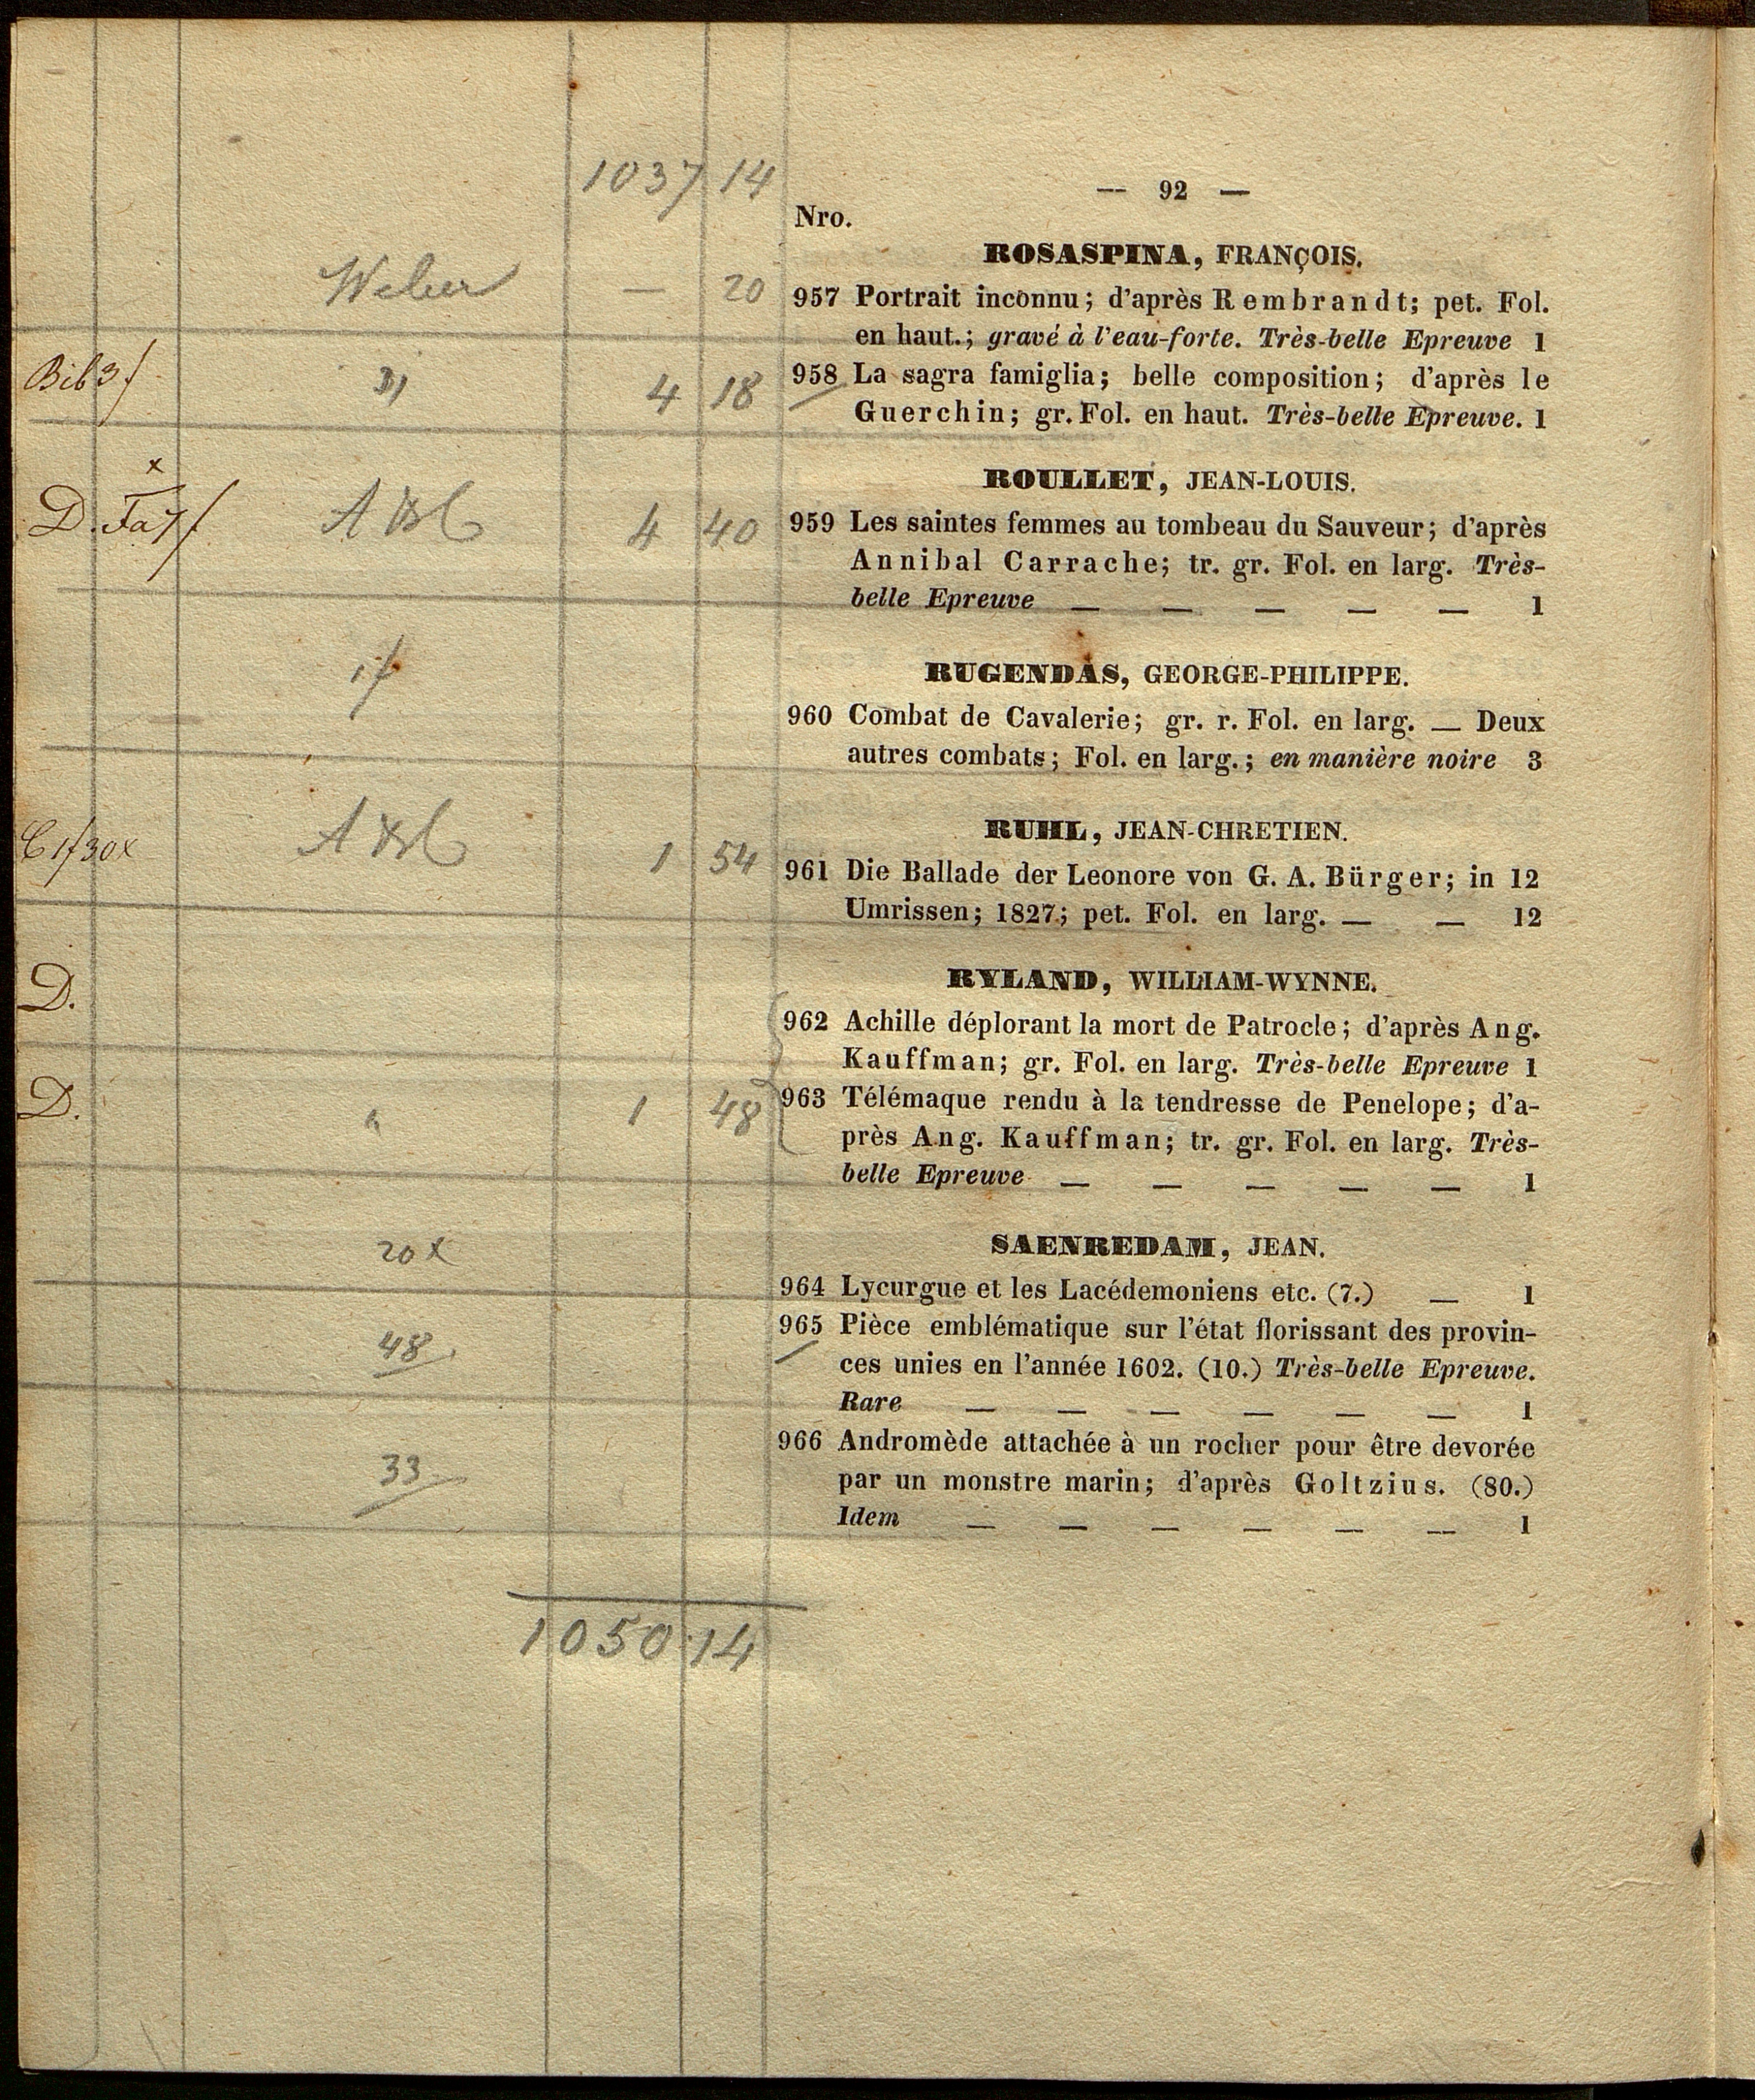 1037 14
— 92 —
Nro.
ROSASPINA, FRANÇOIS.
Weber — 20
957 Portrait inconnu; d'après Rembrandt; pet. Fol.
en haut.; gravé à l'eau-forte. Très-belle Epreuve 1
Bib 3f 4 18
958 La sagra famiglia; belle composition; d'après le
Guerchin; gr. Fol. en haut. Très-belle Epreuve. 1
ROULLET, JEAN-LOUIS.
D. 4 40
959 Les saintes femmes au tombeau du Sauveur; d'après
Annibal Carrache; tr. gr. Fol. en larg. Très-
belle Epreuve — — — — — 1
1f
RUGENDAS, GEORGE-PHILIPPE.
960 Combat de Cavalerie; gr. r. Fol. en larg. — Deux
autres combats; Fol. en larg.; en manière noire 3
RUHL, JEAN-CHRETIEN.
C 1f 30x 1 54
961 Die Ballade der Leonore von G. A. Bürger; in 12
Umrissen; 1827; pet. Fol. en larg. — — 12
RYLAND, WILLIAM-WYNNE.
D.
962 Achille déplorant la mort de Patrocle; d'après Ang.
Kauffman; gr. Fol. en larg. Très-belle Epreuve 1
D. " 1 48
963 Télémaque rendu à la tendresse de Penelope; d'a-
près Ang. Kauffman; tr. gr. Fol. en larg. Très-
belle Epreuve — — — — — 1
SAENREDAM, JEAN.
20x
964 Lycurgue et les Lacédemoniens etc. (7.) — 1
48
965 Pièce emblématique sur l'état florissant des provin-
ces unies en l'année 1602. (10.) Très-belle Epreuve.
Rare — — — — — — 1
33
966 Andromède attachée à un rocher pour être devorée
par un monstre marin; d'après Goltzius. (80.)
Idem — — — — — — 1
1050 14